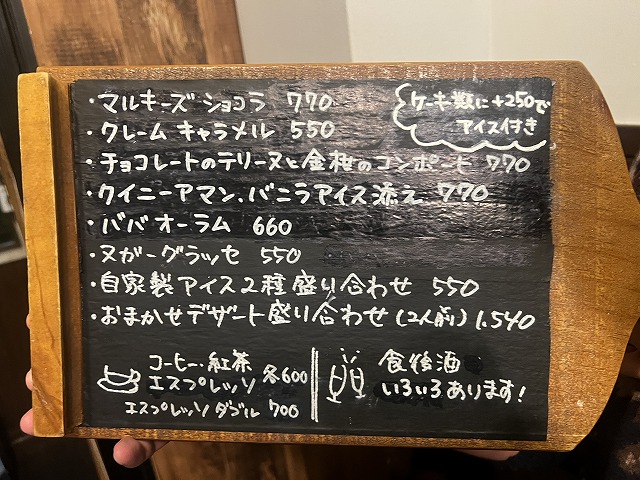 ・マルキーズショコラ 770
ケーキ類に+250で
アイス付き
・クレームキャラメル 550
・チョコレートのテリーヌと金柑のコンポート 770
・クイニーアマン、バニラアイス添え 770
・ババオーラム 660
・ヌガーグラッセ 550
・自家製アイス2種盛り合わせ 550
・おまかせデザート盛り合わせ(2人前) 1,540
コーヒー・紅茶
エスプレッソ 各600
エスプレッソ ダブル 700
食後酒
いろいろあります!